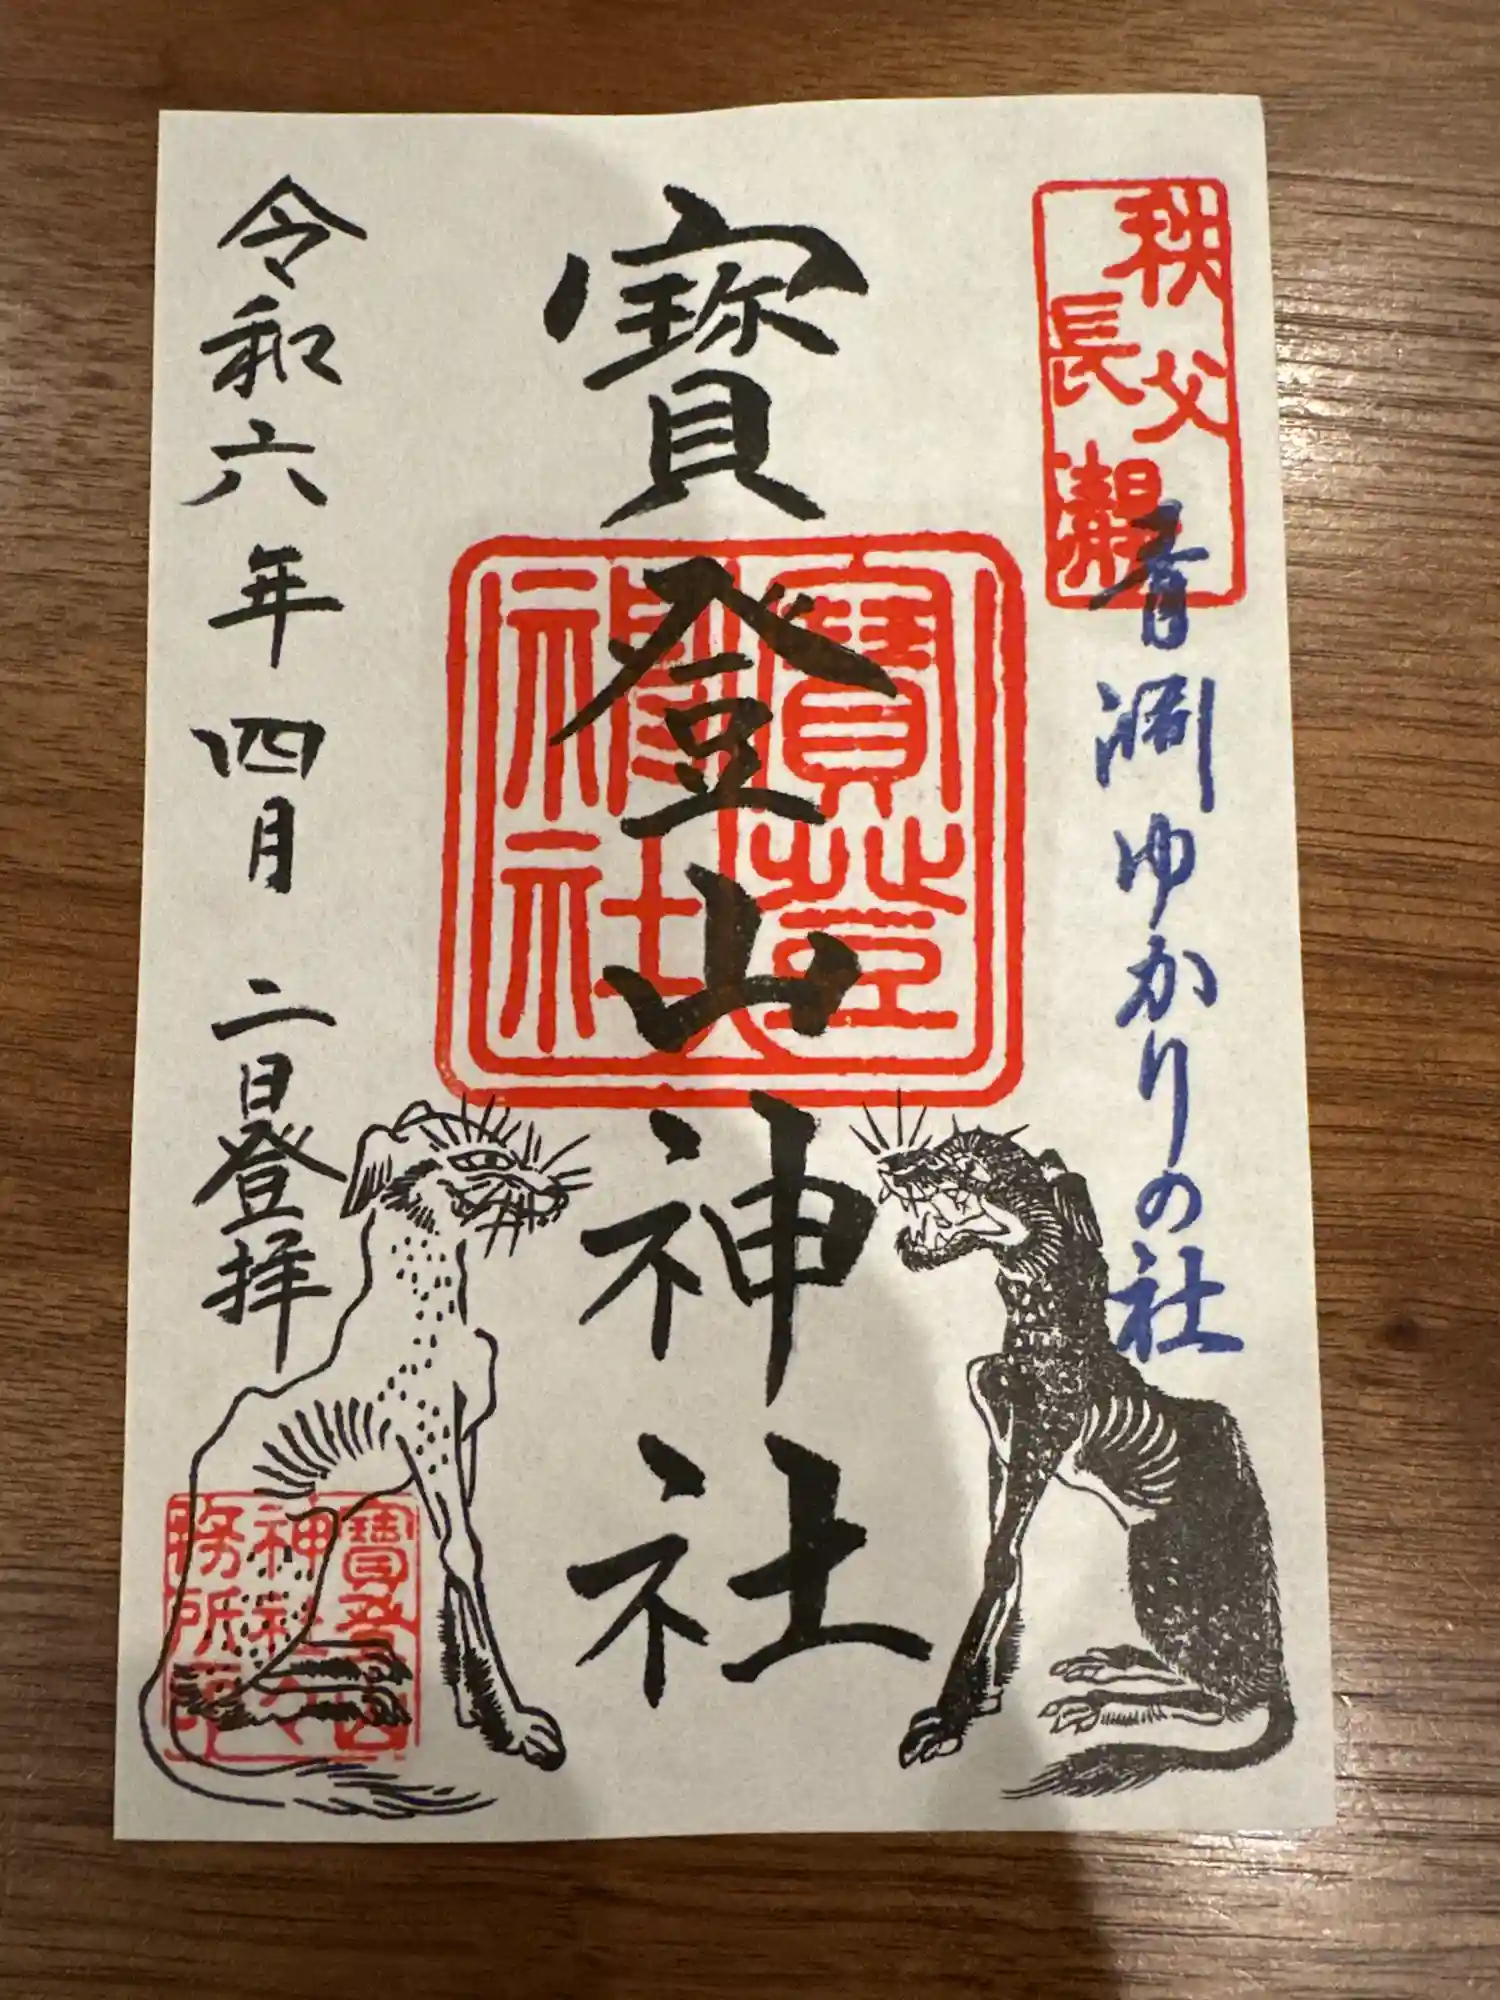 秩父
長瀞
青淵ゆかりの社
寳登山神社
寳登
神社
令和六年四月二日登拝
寳登山
神社
務所